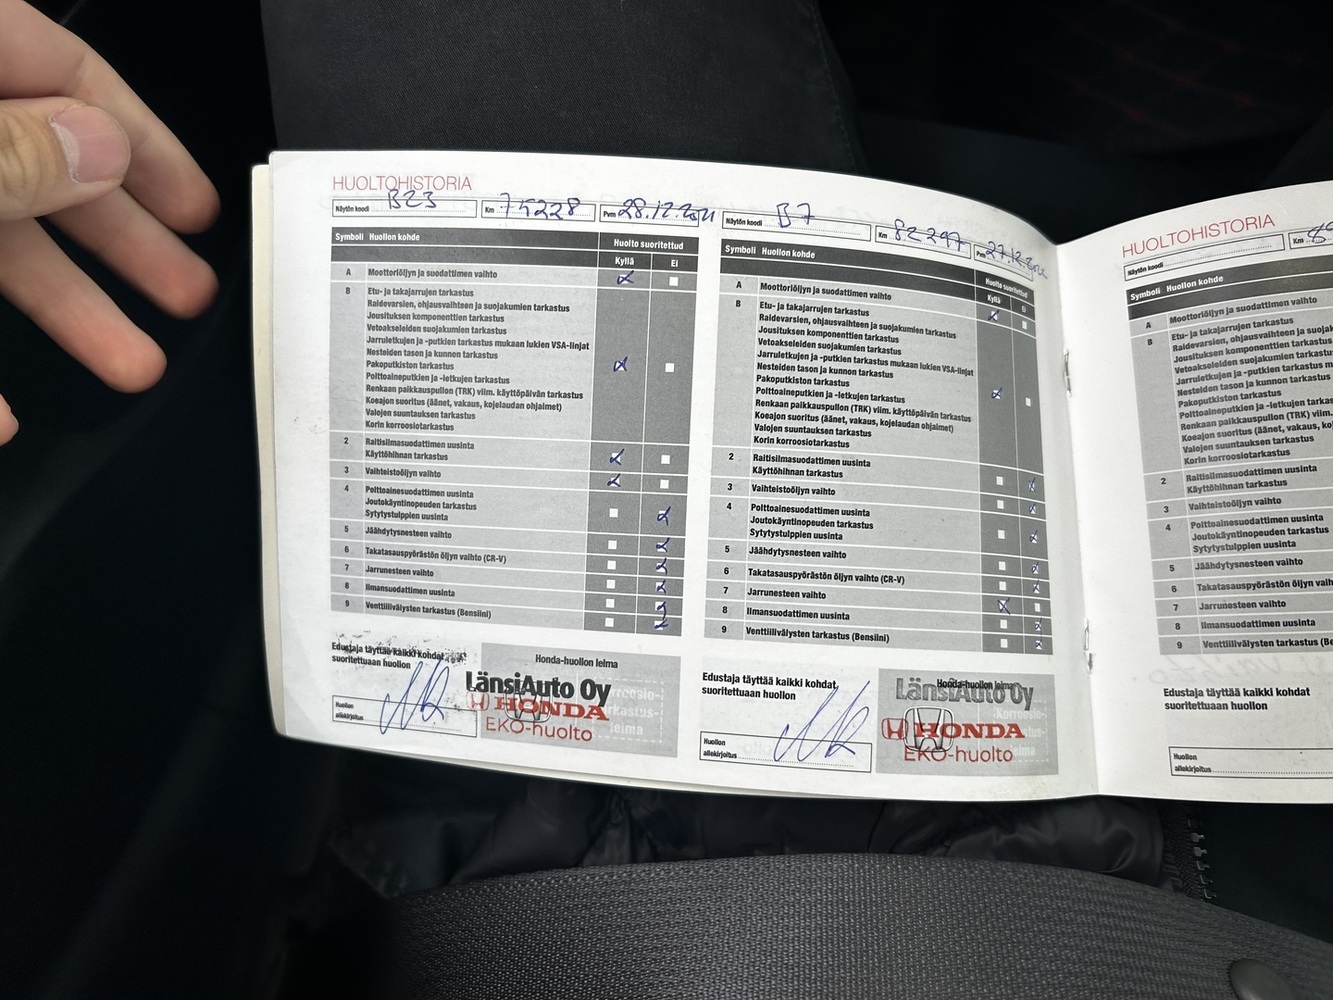 HUOLTOHISTORIA
Näytön koodi B23 Km 75228 Pvm 28.12.2021
Symboli Huollon kohde Huolto suoritettud
Kyllä Ei
A Moottoriöljyn ja suodattimen vaihto
B Etu- ja takajarrujen tarkastus
Raidevarsien, ohjausvaihteen ja suojakumien tarkastus
Jousituksen komponenttien tarkastus
Vetoakseleiden suojakumien tarkastus
Jarruletkujen ja -putkien tarkastus mukaan lukien VSA-linjat
Nesteiden tason ja kunnon tarkastus
Pakoputkiston tarkastus
Polttoaineputkien ja -letkujen tarkastus
Renkaan paikkauspullon (TRK) viim. käyttöpäivän tarkastus
Koeajon suoritus (äänet, vakaus, kojelaudan ohjaimet)
Valojen suuntauksen tarkastus
Korin korroosiotarkastus
2 Raitisilmasuodattimen uusinta
Käyttöhihnan tarkastus
3 Vaihteistoöljyn vaihto
4 Polttoainesuodattimen uusinta
Joutokäyntinopeuden tarkastus
Sytytystulppien uusinta
5 Jäähdytysnesteen vaihto
6 Takatasauspyörästön öljyn vaihto (CR-V)
7 Jarrunesteen vaihto
8 Ilmansuodattimen uusinta
9 Venttiilivälysten tarkastus (Bensiini)
Edustaja täyttää kaikki kohdat
suoritettuaan huollon
Huollon
allekirjoitus
Honda-huollon leima
LänsiAuto Oy
HONDA
EKO-huolto
Näytön koodi B7 Km 82297 Pvm 27.12.2022
Symboli Huollon kohde Huolto suoritettud
Kyllä Ei
A Moottoriöljyn ja suodattimen vaihto
B Etu- ja takajarrujen tarkastus
Raidevarsien, ohjausvaihteen ja suojakumien tarkastus
Jousituksen komponenttien tarkastus
Vetoakseleiden suojakumien tarkastus
Jarruletkujen ja -putkien tarkastus mukaan lukien VSA-linjat
Nesteiden tason ja kunnon tarkastus
Pakoputkiston tarkastus
Polttoaineputkien ja -letkujen tarkastus
Renkaan paikkauspullon (TRK) viim. käyttöpäivän tarkastus
Koeajon suoritus (äänet, vakaus, kojelaudan ohjaimet)
Valojen suuntauksen tarkastus
Korin korroosiotarkastus
2 Raitisilmasuodattimen uusinta
Käyttöhihnan tarkastus
3 Vaihteistoöljyn vaihto
4 Polttoainesuodattimen uusinta
Joutokäyntinopeuden tarkastus
Sytytystulppien uusinta
5 Jäähdytysnesteen vaihto
6 Takatasauspyörästön öljyn vaihto (CR-V)
7 Jarrunesteen vaihto
8 Ilmansuodattimen uusinta
9 Venttiilivälysten tarkastus (Bensiini)
Edustaja täyttää kaikki kohdat
suoritettuaan huollon
Huollon
allekirjoitus
Honda-huollon leima
LänsiAuto Oy
HONDA
EKO-huolto
HUOLTOHISTORIA
Näytön koodi Km
Symboli Huollon kohde
A Moottoriöljyn ja suodattimen vaihto
B Etu- ja takajarrujen tarkastus
Raidevarsien, ohjausvaihteen ja suojaku
Jousituksen komponenttien tarkastus
Vetoakseleiden suojakumien tarkastus
Jarruletkujen ja -putkien tarkastus muka
Nesteiden tason ja kunnon tarkastus
Pakoputkiston tarkastus
Polttoaineputkien ja -letkujen tarkastus
Renkaan paikkauspullon (TRK) viim.
Koeajon suoritus (äänet, vakaus, ko
Valojen suuntauksen tarkastus
Korin korroosiotarkastus
2 Raitisilmasuodattimen uusinta
Käyttöhihnan tarkastus
3 Vaihteistoöljyn vaihto
4 Polttoainesuodattimen uusinta
Joutokäyntinopeuden tarkastus
Sytytystulppien uusinta
5 Jäähdytysnesteen vaihto
6 Takatasauspyörästön öljyn vaih
7 Jarrunesteen vaihto
8 Ilmansuodattimen uusinta
9 Venttiilivälysten tarkastus (Be
Edustaja täyttää kaikki kohdat
suoritettuaan huollon
Huollon
allekirjoitus